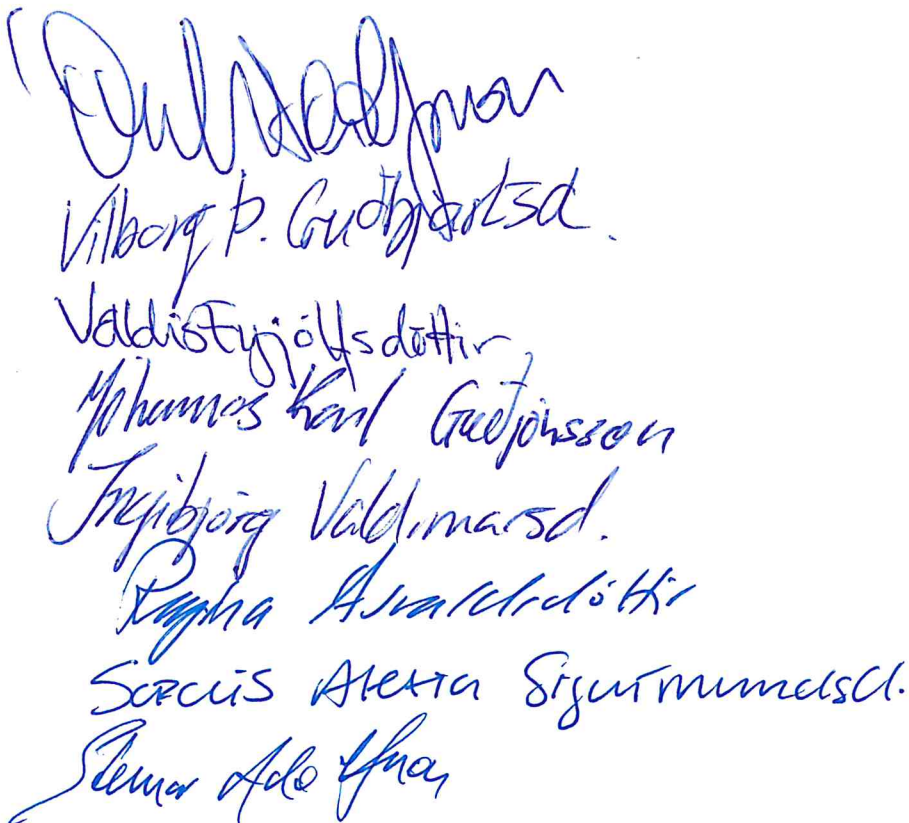 Adolfsson
Vilborg Þ. Guðbjartsd.
Valdís Eyjólfsdóttir
Jóhannes Karl Guðjónsson
Ingibjörg Valdimarsd.
Ragna Ásvaldsdóttir
Sædís Alexía Sigurmundsd.
Steinar Adolfsson